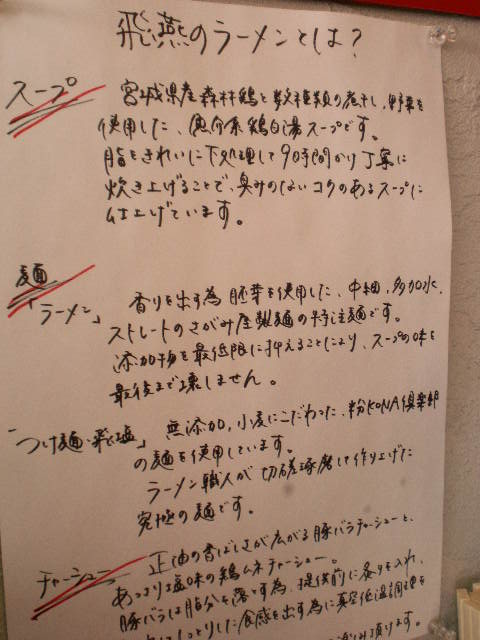 飛燕のラーメンとは?
スープ
宮城県産森林鶏と数種類の煮干し、野菜を
使用した、魚介系鶏白湯スープです。
脂をきれいに下処理して9時間かけ丁寧に
炊き上げることで、臭みのないコクのあるスープに
仕上げています。
麺
「ラーメン」
香りを出す為胚芽を使用した、中細、多加水、
ストレートのさがみ屋製麺の特注麺です。
添加物を最低限に抑えることにより、スープの味を
最後まで壊しません。
「つけ麺・飛塩」
無添加、小麦にこだわった、粉KONA倶楽部
の麺を使用しています。
ラーメン職人が切磋琢磨して作り上げた
究極の麺です。
チャーシュー
正油の香ばしさが広がる豚バラチャーシューと、
あっさり塩味の鶏ムネチャーシュー。
豚バラは脂分を落とす為、提供前に炙りを入れ、
しっとりした食感を出す為に真空低温調理を
頂けます。